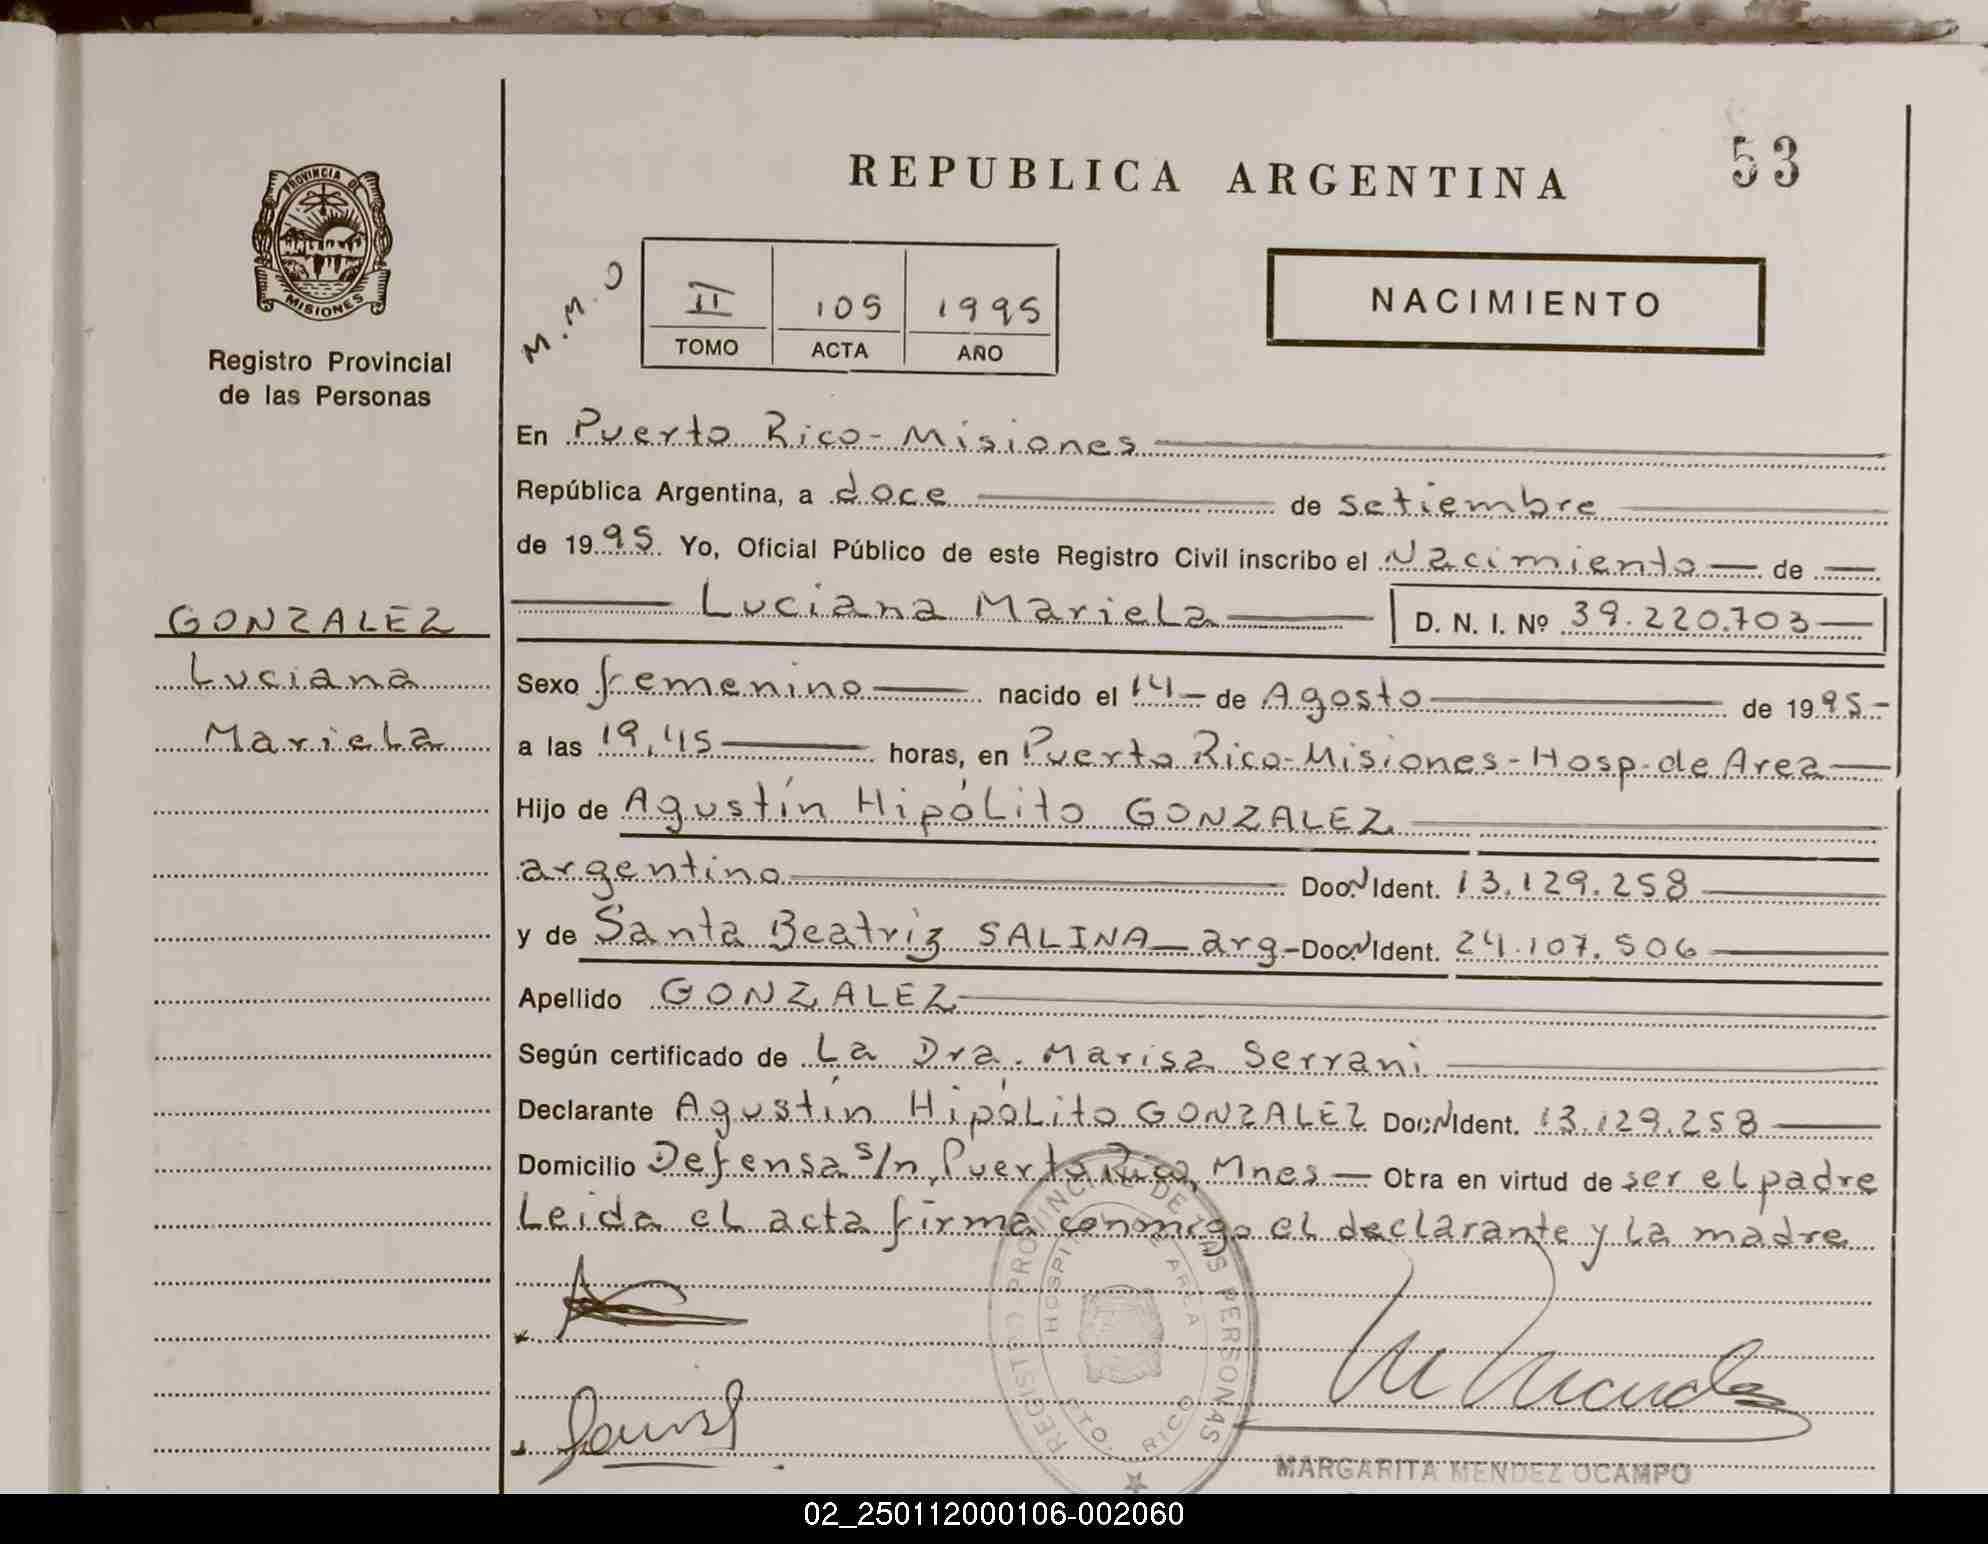 53
REPUBLICA ARGENTINA
PROVINCIA DE
MISIONES
Registro Provincial
de las Personas
M.M.O
II 105 1995
TOMO ACTA AÑO
NACIMIENTO
En Puerto Rico - Misiones
República Argentina, a doce de setiembre
de 1995 Yo, Oficial Público de este Registro Civil inscribo el Nacimiento de
Luciana Mariela D. N. I. Nº 39.220.703
GONZALEZ
Luciana
Mariela
Sexo femenino nacido el 14 de Agosto de 1995
a las 19,45 horas, en Puerto Rico - Misiones - Hosp. de Area
Hijo de Agustín Hipólito GONZALEZ
argentino Doc. N Ident. 13.129.258
y de Santa Beatriz SALINA arg- Doc. N Ident. 24.107.506
Apellido GONZALEZ
Según certificado de La Dra. Marisa Serrani
Declarante Agustín Hipólito GONZALEZ Doc. N Ident. 13.129.258
Domicilio Defensa s/n, Puerto Rico, Mnes — Obra en virtud de ser el padre
Leida el acta firma conmigo el declarante y la madre
REGISTRO PROVINCIAL DE LAS PERSONAS
HOSPITAL DE AREA
PTO. RICO
MARGARITA MENDEZ OCAMPO
02_250112000106-002060